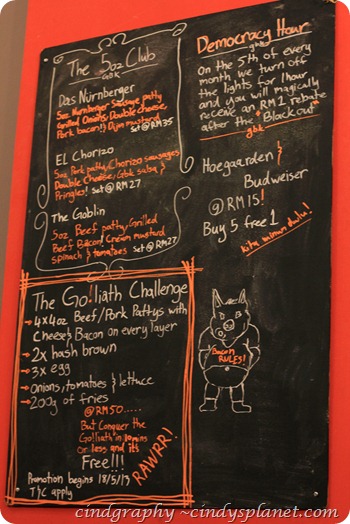 The 5oz Club
GBK
Das Nürnberger
5oz Nürnberger Sausage patty
Grilled Onions, Double cheese,
Pork bacon! } Dijon mustard
Set @ RM35
EL Chorizo
5oz Pork patty, Chorizo sausages
Double Cheese, Gbk salsa }
Pringles! Set @ RM27
The Goblin
5oz Beef patty, Grilled
Beef Bacon, Cream mustard
spinach } tomatoes Set @ RM27
Democracy Hour
gbites
On the 5th of every
month, we turn off
the lights for 1hour
and you will magically
receive an RM1 rebate
after the "Black out"
gbk
Hoegaarden }
Budweiser
@ RM15!
Buy 5 free 1
kita minum dulu!
The Go!liath Challenge
→ 4x4oz Beef/Pork Pattys with
Cheese } Bacon on every layer
→ 2x hash brown
→ 3x egg
→ Onions, tomatoes } lettuce
→ 200g of fries
@RM50.....
But Conquer the
Goliath in 10mins
or less and its
Free!!!
RAWRR!
Promotion begins 18/5/17
T}C apply
Bacon
RULES!
cindgraphy ~cindysplanet.com